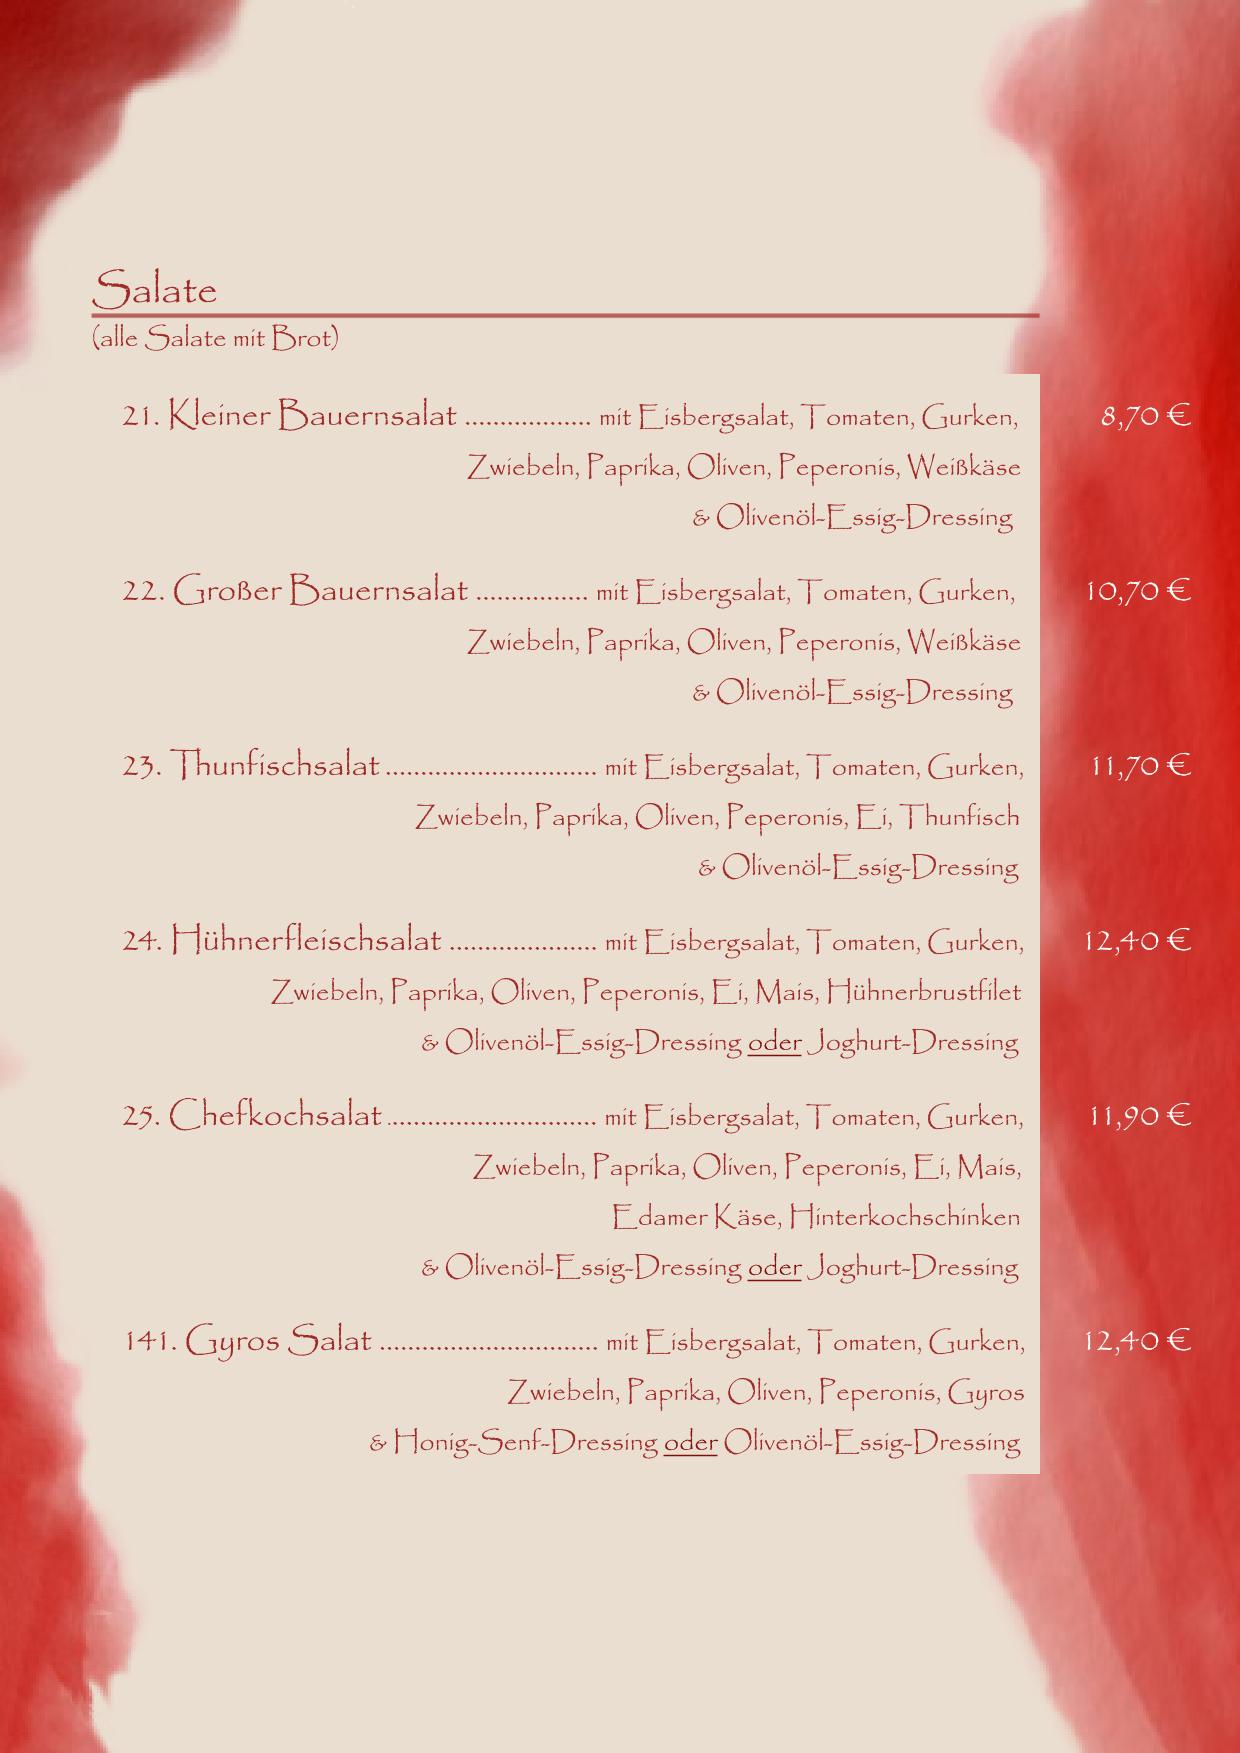 Salate
(alle Salate mit Brot)
21. Kleiner Bauernsalat .................. mit Eisbergsalat, Tomaten, Gurken, 8,70 €
Zwiebeln, Paprika, Oliven, Peperonis, Weißkäse
& Olivenöl-Essig-Dressing
22. Großer Bauernsalat ................ mit Eisbergsalat, Tomaten, Gurken, 10,70 €
Zwiebeln, Paprika, Oliven, Peperonis, Weißkäse
& Olivenöl-Essig-Dressing
23. Thunfischsalat .............................. mit Eisbergsalat, Tomaten, Gurken, 11,70 €
Zwiebeln, Paprika, Oliven, Peperonis, Ei, Thunfisch
& Olivenöl-Essig-Dressing
24. Hühnerfleischsalat ..................... mit Eisbergsalat, Tomaten, Gurken, 12,40 €
Zwiebeln, Paprika, Oliven, Peperonis, Ei, Mais, Hühnerbrustfilet
& Olivenöl-Essig-Dressing oder Joghurt-Dressing
25. Chefkochsalat .............................. mit Eisbergsalat, Tomaten, Gurken, 11,90 €
Zwiebeln, Paprika, Oliven, Peperonis, Ei, Mais,
Edamer Käse, Hinterkochschinken
& Olivenöl-Essig-Dressing oder Joghurt-Dressing
141. Gyros Salat ............................... mit Eisbergsalat, Tomaten, Gurken, 12,40 €
Zwiebeln, Paprika, Oliven, Peperonis, Gyros
& Honig-Senf-Dressing oder Olivenöl-Essig-Dressing